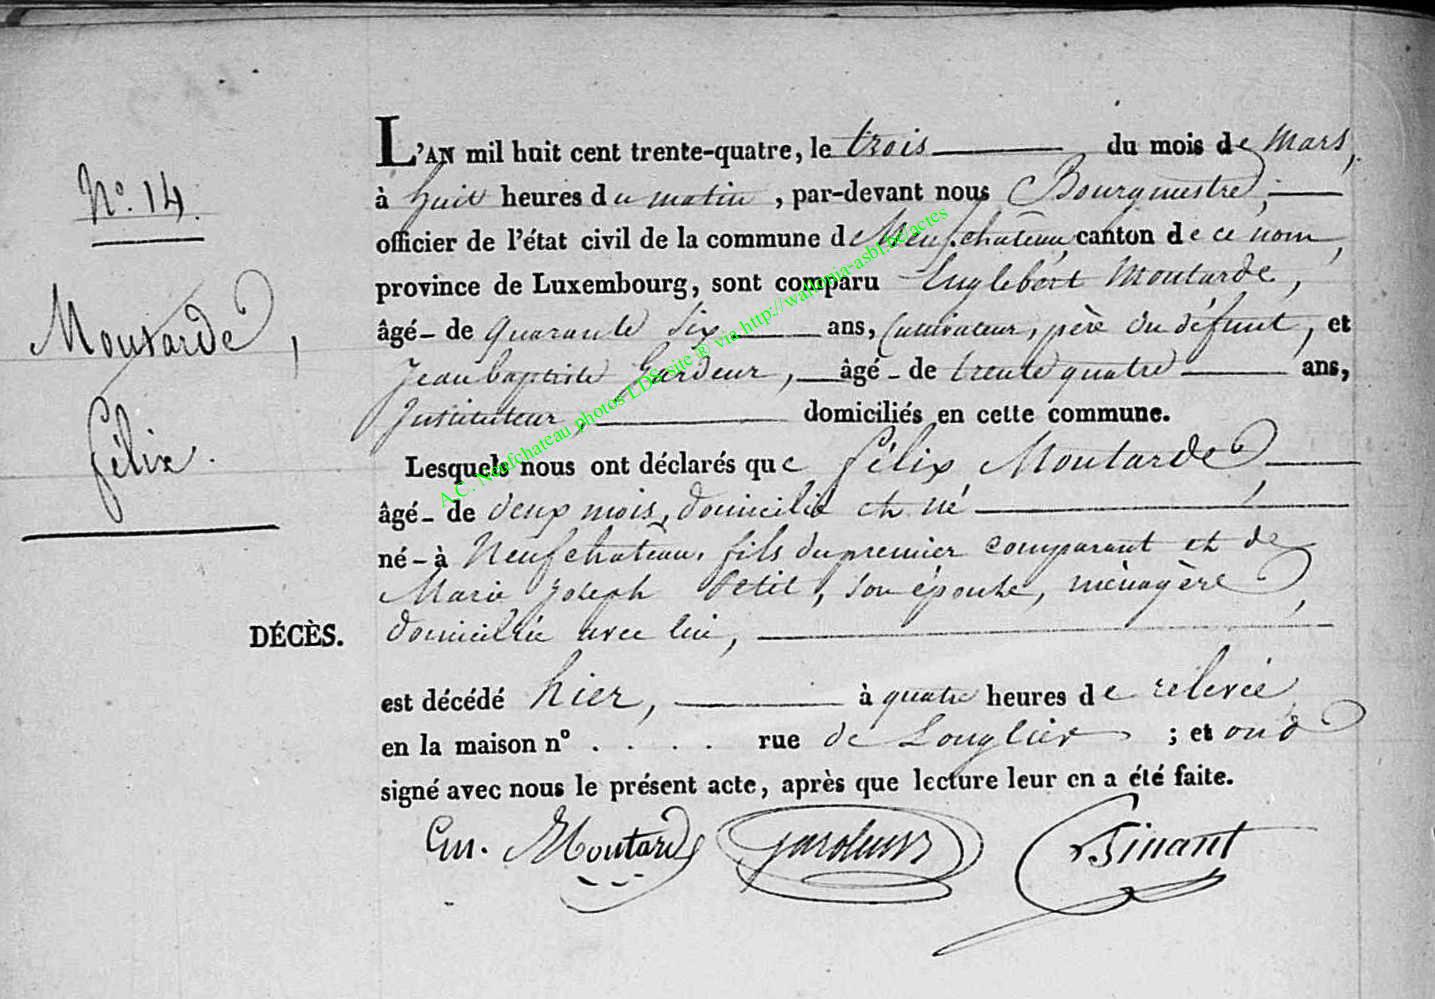 L'AN mil huit cent trente-quatre, le trois du mois de Mars,
N.° 14.
à huit heures du matin, par-devant nous Bourgmestre,
officier de l'état civil de la commune de Neufchâteau, canton de ce nom,
province de Luxembourg, sont comparu Englebert Moutarde,
Moutarde,
âgé - de quarante six ans, Cultivateur, père du défunt, et
Jean baptiste Gardeur, âgé - de trente quatre ans,
Instituteur, domiciliés en cette commune.
félix.
Lesquels nous ont déclarés que félix Moutarde,
âgé - de deux mois, domicilié et né
né - à Neufchateau, fils du premier comparant et de
Marie Joseph Petit, son épouse, ménagère,
DÉCÈS. domiciliée avec lui,
est décédé hier, à quatre heures de relevée,
en la maison n° . . . . rue de Longlier ; et ont
signé avec nous le présent acte, après que lecture leur en a été faite.
En. Moutarde Binant
A.C. Neufchateau photos LDS site ® via http://wallonia-asbl.be/actes